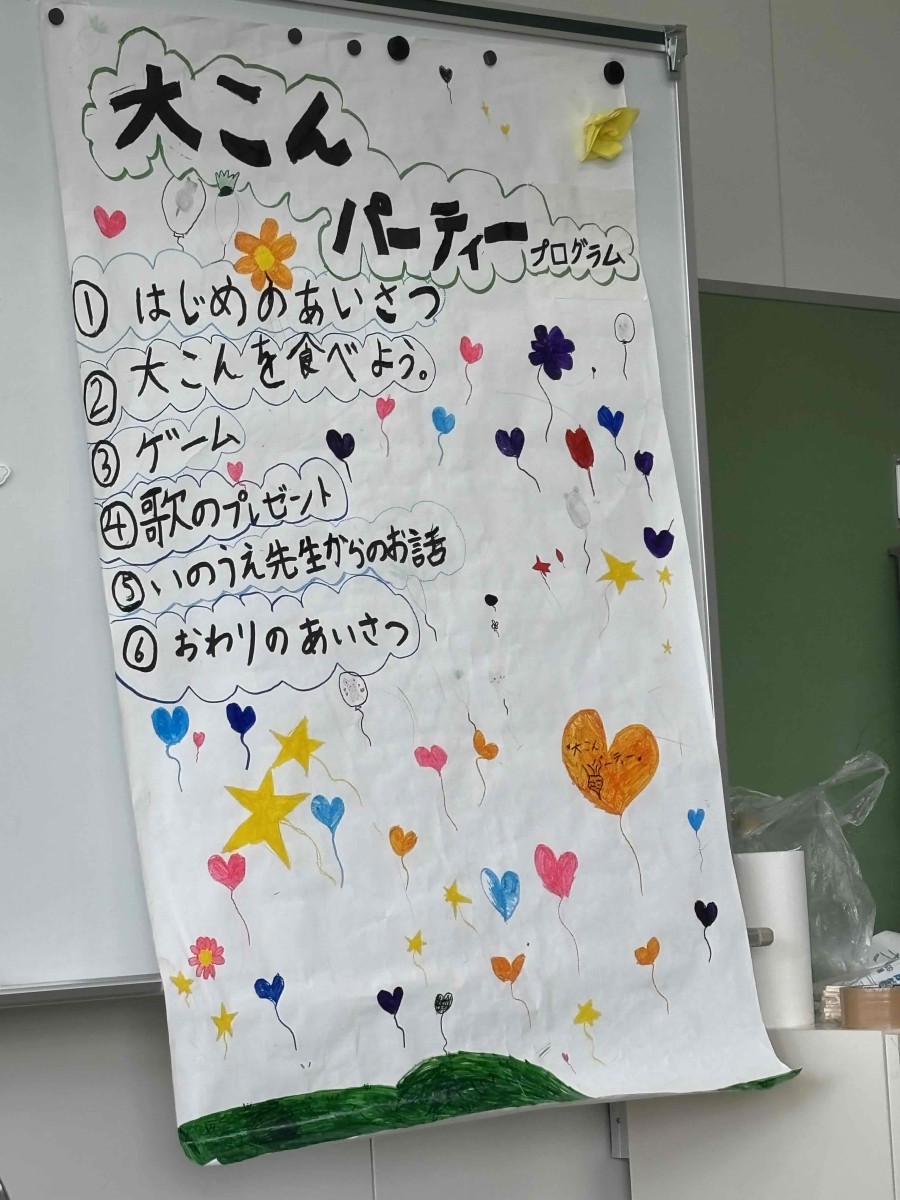 大こん
パーティー プログラム
① はじめのあいさつ
② 大こんを食べよう。
③ ゲーム
④ 歌のプレゼント
⑤ いのうえ先生からのお話
⑥ おわりのあいさつ
大こん
パーティー